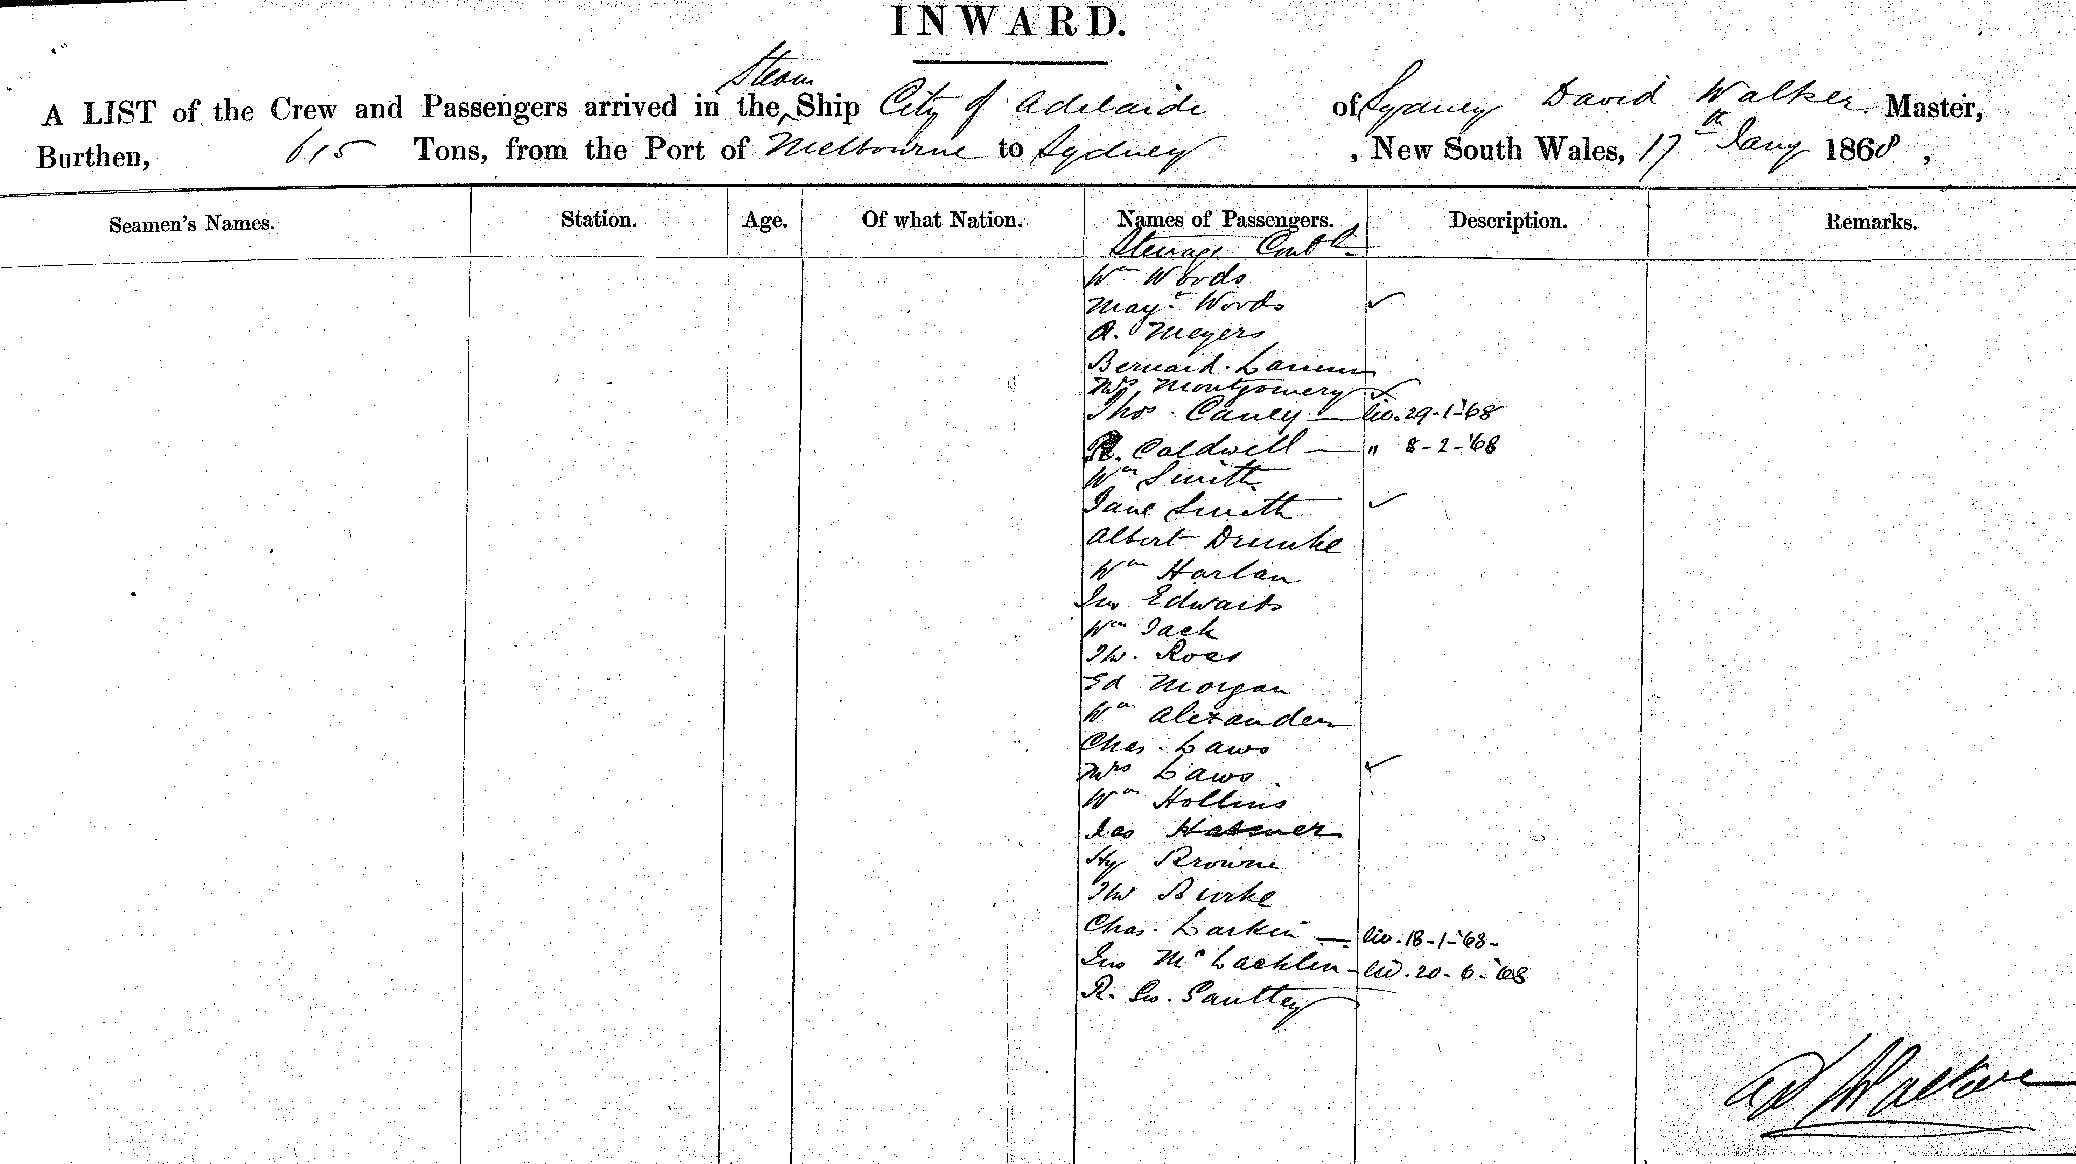 INWARD.
Steam
A LIST of the Crew and Passengers arrived in the Ship City of Adelaide of Sydney David Walker Master,
Burthen, 615 Tons, from the Port of Melbourne to Sydney , New South Wales, 17th Jany 1868 ,
Seamen's Names. Station. Age. Of what Nation. Names of Passengers. Description. Remarks.
Steerage Contd
Wm Woods
Mayt Woods ✓
A. Meyers
Bernard
Mrs Montgomery ✓
Thos. Caney — 29-1-'68
R. Caldwell — " 8-2-'68
Wm Smith
Jane Smith ✓
Albert
Wm Harlan
Jno Edwards
Wm Jack
Th. Ross
Ed Morgan
Wm Alexander
Chas. Laws
Mrs Laws ✓
Wm Hollins
Jas
Hy Browne
Th Burke
Chas. Larkin — 18-1-'68-
Jno McLachlin - 20-6-'68
R. Geo.
Walker